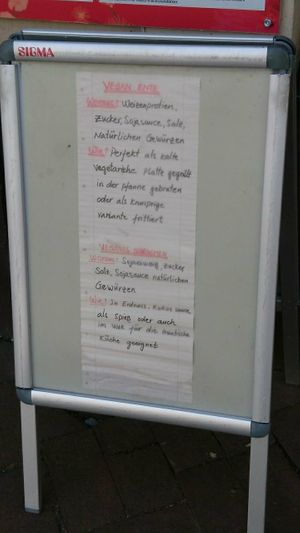 SIGMA
VEGAN ENTE
Woraus? Weizenprotien,
Zucker, Sojasauce, Salz,
Natürlichen Gewürzen
Wie? Perfekt als kalte
vegetarische Platte gegrillt
in der Pfanne gebraten
oder als Knusprige
variante frittiert
Woraus? Sojaeiweiß, Zucker
Salz, Sojasauce natürlichen
Gewürzen
Wie? In Erdnuss-, Kokus sauce,
als Spieß oder auch
im Wok für die asiatische
Küche geeignet